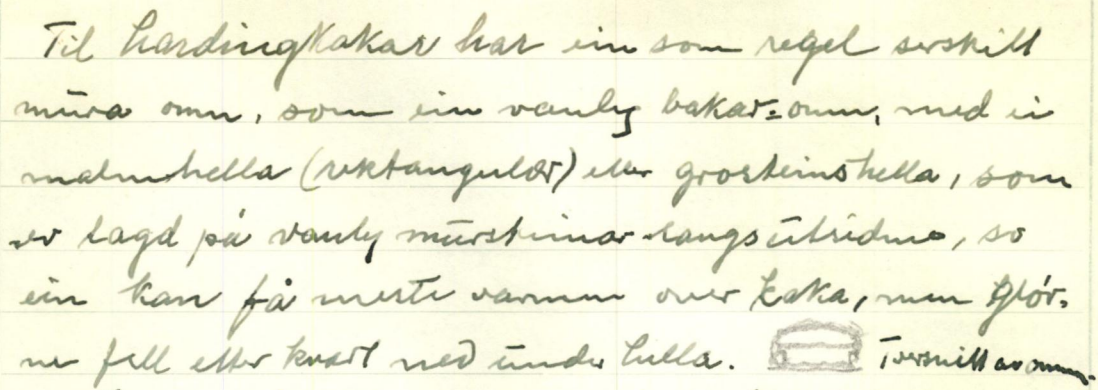 Til hardingkakar har ein som regel serskilt
mura omn, som ein vanleg bakar-omn, med ei
malmhella (rektangulær) eller grosteinshella, som
er lagd på vanleg mursteinar langs utsidene, so
ein kan få meste varmen over kaka, men glør-
ne fell etter kvart ned under hella. Tversnitt av omnen.